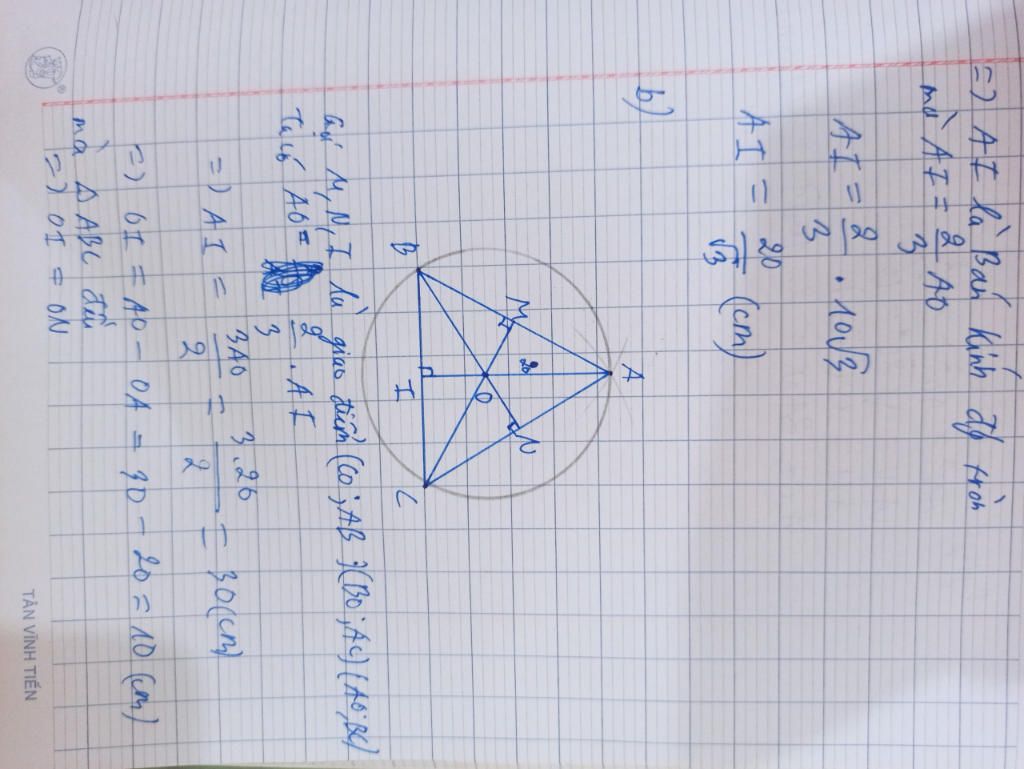 => AI là Bán kính đg tròn
mà AI = 2/3 AO
AI = 2/3 . 10√3
AI = 20/√3 (cm)
b)
A
M
N
20
O
B
I
C
Gọi M, N, I là giao điểm (CO; AB) (BO; AC) (AO; BC)
Ta có AO = 2/3 . AI
=> AI = 3AO/2 = 3.20/2 = 30 (cm)
=> OI = AO - OA = 30 - 20 = 10 (cm)
mà Δ ABC đều
=> OI = ON
TÂN VĨNH TIẾN